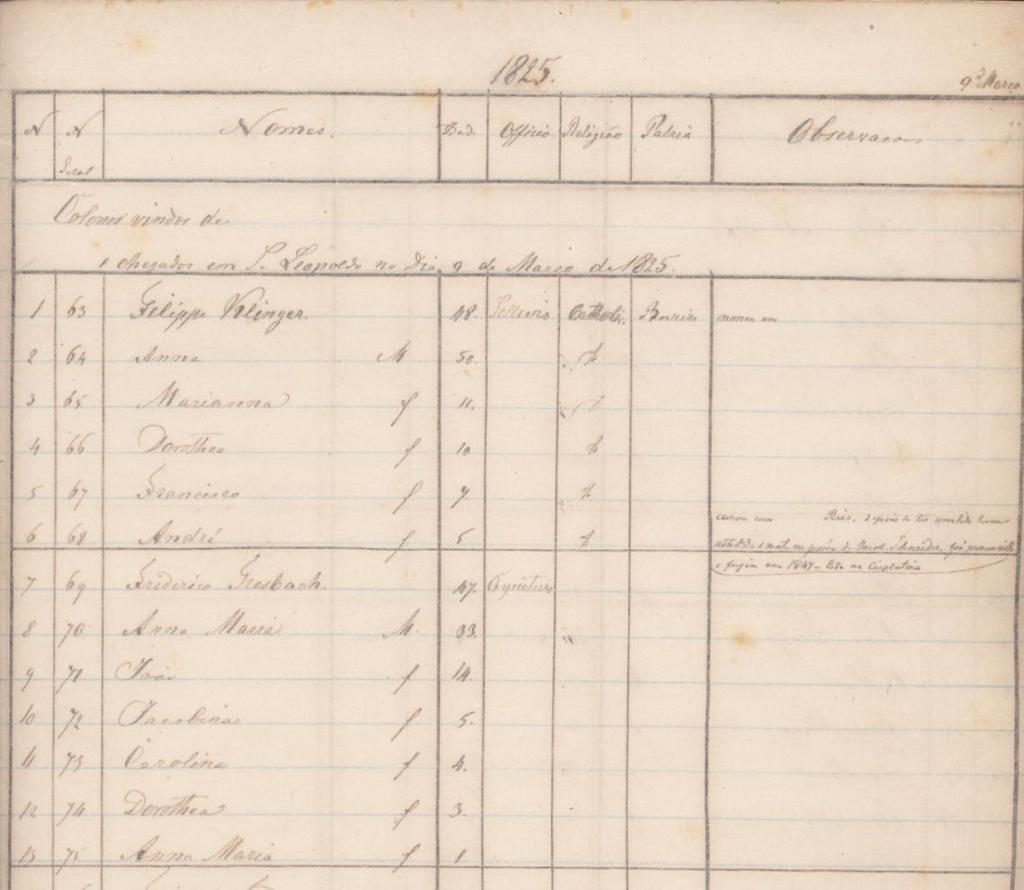 1825.
9 Março
N N Nomes. Idad. Officio Religião Patria Observacoes
Geral
Colonos vindos de
e chegados em S. Leopoldo no Dia 9 de Março de 1825.
1 63 Filippe Klinger. 48. Cathol.
2 64 Anna M 50.
3 65 Marianna f 11.
4 66 Dorothea f 10
5 67 Francisco f 7
casou com Ries, depois de ter
6 68 André f 5
Jacob Schneider, foi
e fugio em 1847 - Está na Cisplatina
7 69 Frederico Gresbach. 47.
8 70 Anna Maria M. 33. "
9 71 João f 14
10 72 Jacobina f 5.
11 73 Carolina f 4.
12 74 Dorothea f 3.
13 75 Anna Maria f 1.